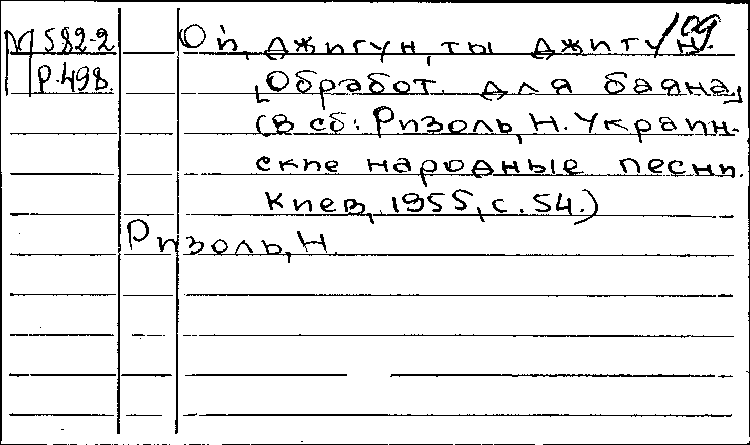 М 582-2
Р.498.
109
Ой, джигун, ты джигун.
[Обработ. для баяна]
(В сб: Ризоль, Н. Украин-
ские народные песни.
Киев, 1955, с. 54.)
Ризоль, Н.